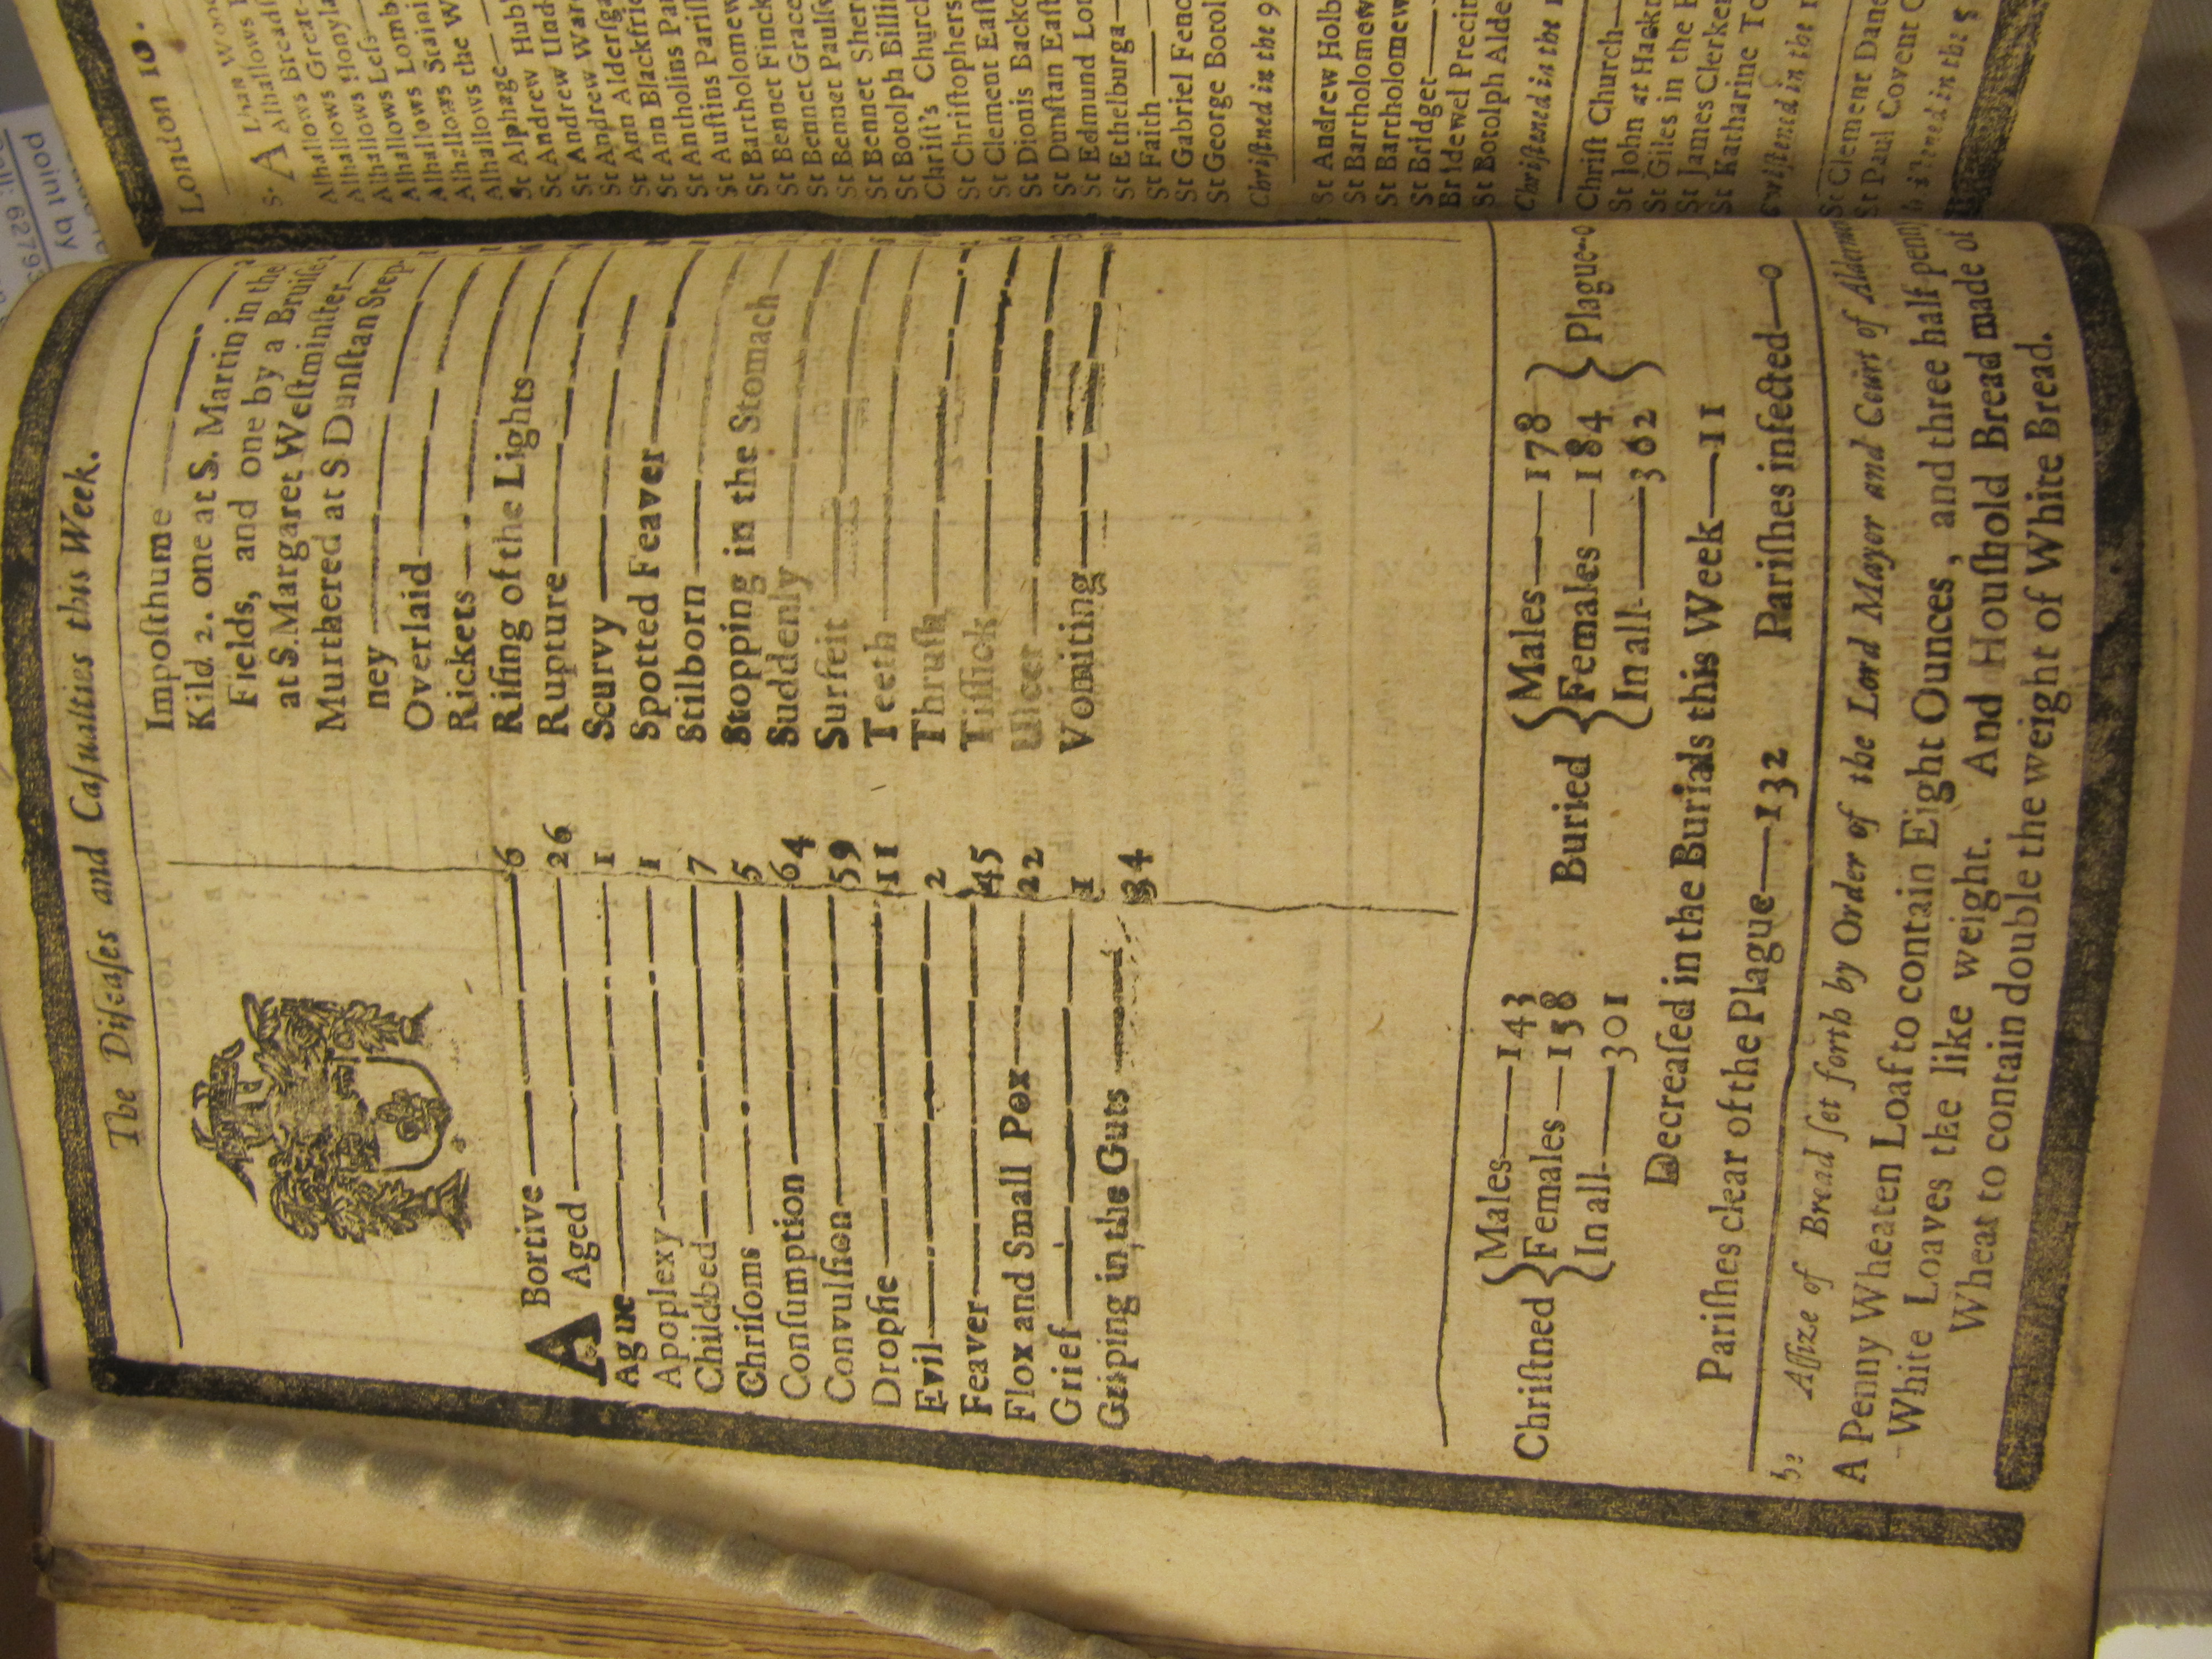 The Diſeaſes and Caſualties this Week.
ABortive 6
Aged 26
Ague 1
Apoplexy 1
Childbed 7
Chriſoms 5
Conſumption 64
Convulſion 59
Dropſie 11
Evil 2
Feaver 45
Flox and Small Pox 22
Grief 1
Griping in the Guts 34
Impoſthume
Kild 2. one at S. Martin in the
Fields, and one by a Bruiſe
at S. Margaret Weſtminſter
Murthered at S Dunſtan Step
ney
Overlaid
Rickets
Riſing of the Lights
Rupture
Scurvy
Spotted Feaver
Stilborn
Stopping in the Stomach
Suddenly
Surfeit
Teeth
Thruſh
Tiſſick
Ulcer
Vomiting
Chriſtned { Males 143
Females 158
In all 301
Buried { Males 178
Females 184
In all 362 } Plague 0
Decreaſed in the Burials this Week 11
Pariſhes clear of the Plague 132 Pariſhes infected 0
Aſſize of Bread ſet forth by Order of the Lord Mayor and Court of
A Penny Wheaten Loaf to contain Eight Ounces, and three half penny
White Loaves the like weight. And Houſhold Bread made of
Wheat to contain double the weight of White Bread.
London 10.
Alhallows Great
Alhallows Leſs
Alhallows Lomb
Alhallows Staini
Alhallows the W
St Alphage
St Andrew Hub
St Andrew Und
St Andrew War
St Ann Alderſga
St Ann Blackfrie
St Antholins Par
St Auſtins Pariſh
St Bartholomew
St Bennet Finck
St Bennet Grace
St Bennet Paulſw
St Bennet Sher
St Botolph Billin
Chriſt's Church
St Chriſtophers
St Clement Eaſt
St Dionis Backc
St Dunſtan Eaſt
St Edmund Lo
St Ethelburga
St Faith
St Gabriel Fenc
St George Botol
Chriſtned in the 9
St Andrew Holb
St Bartholomew
St Bartholomew
St Bridget
Bridewel Precin
St Botolph Alde
Chriſtned in the
Chriſt Church
St John at Hackn
St Giles in the
St James Clerke
St Katharine To
Chriſtened in the
St Clement Dane
St Paul Covent
in the 5
point by